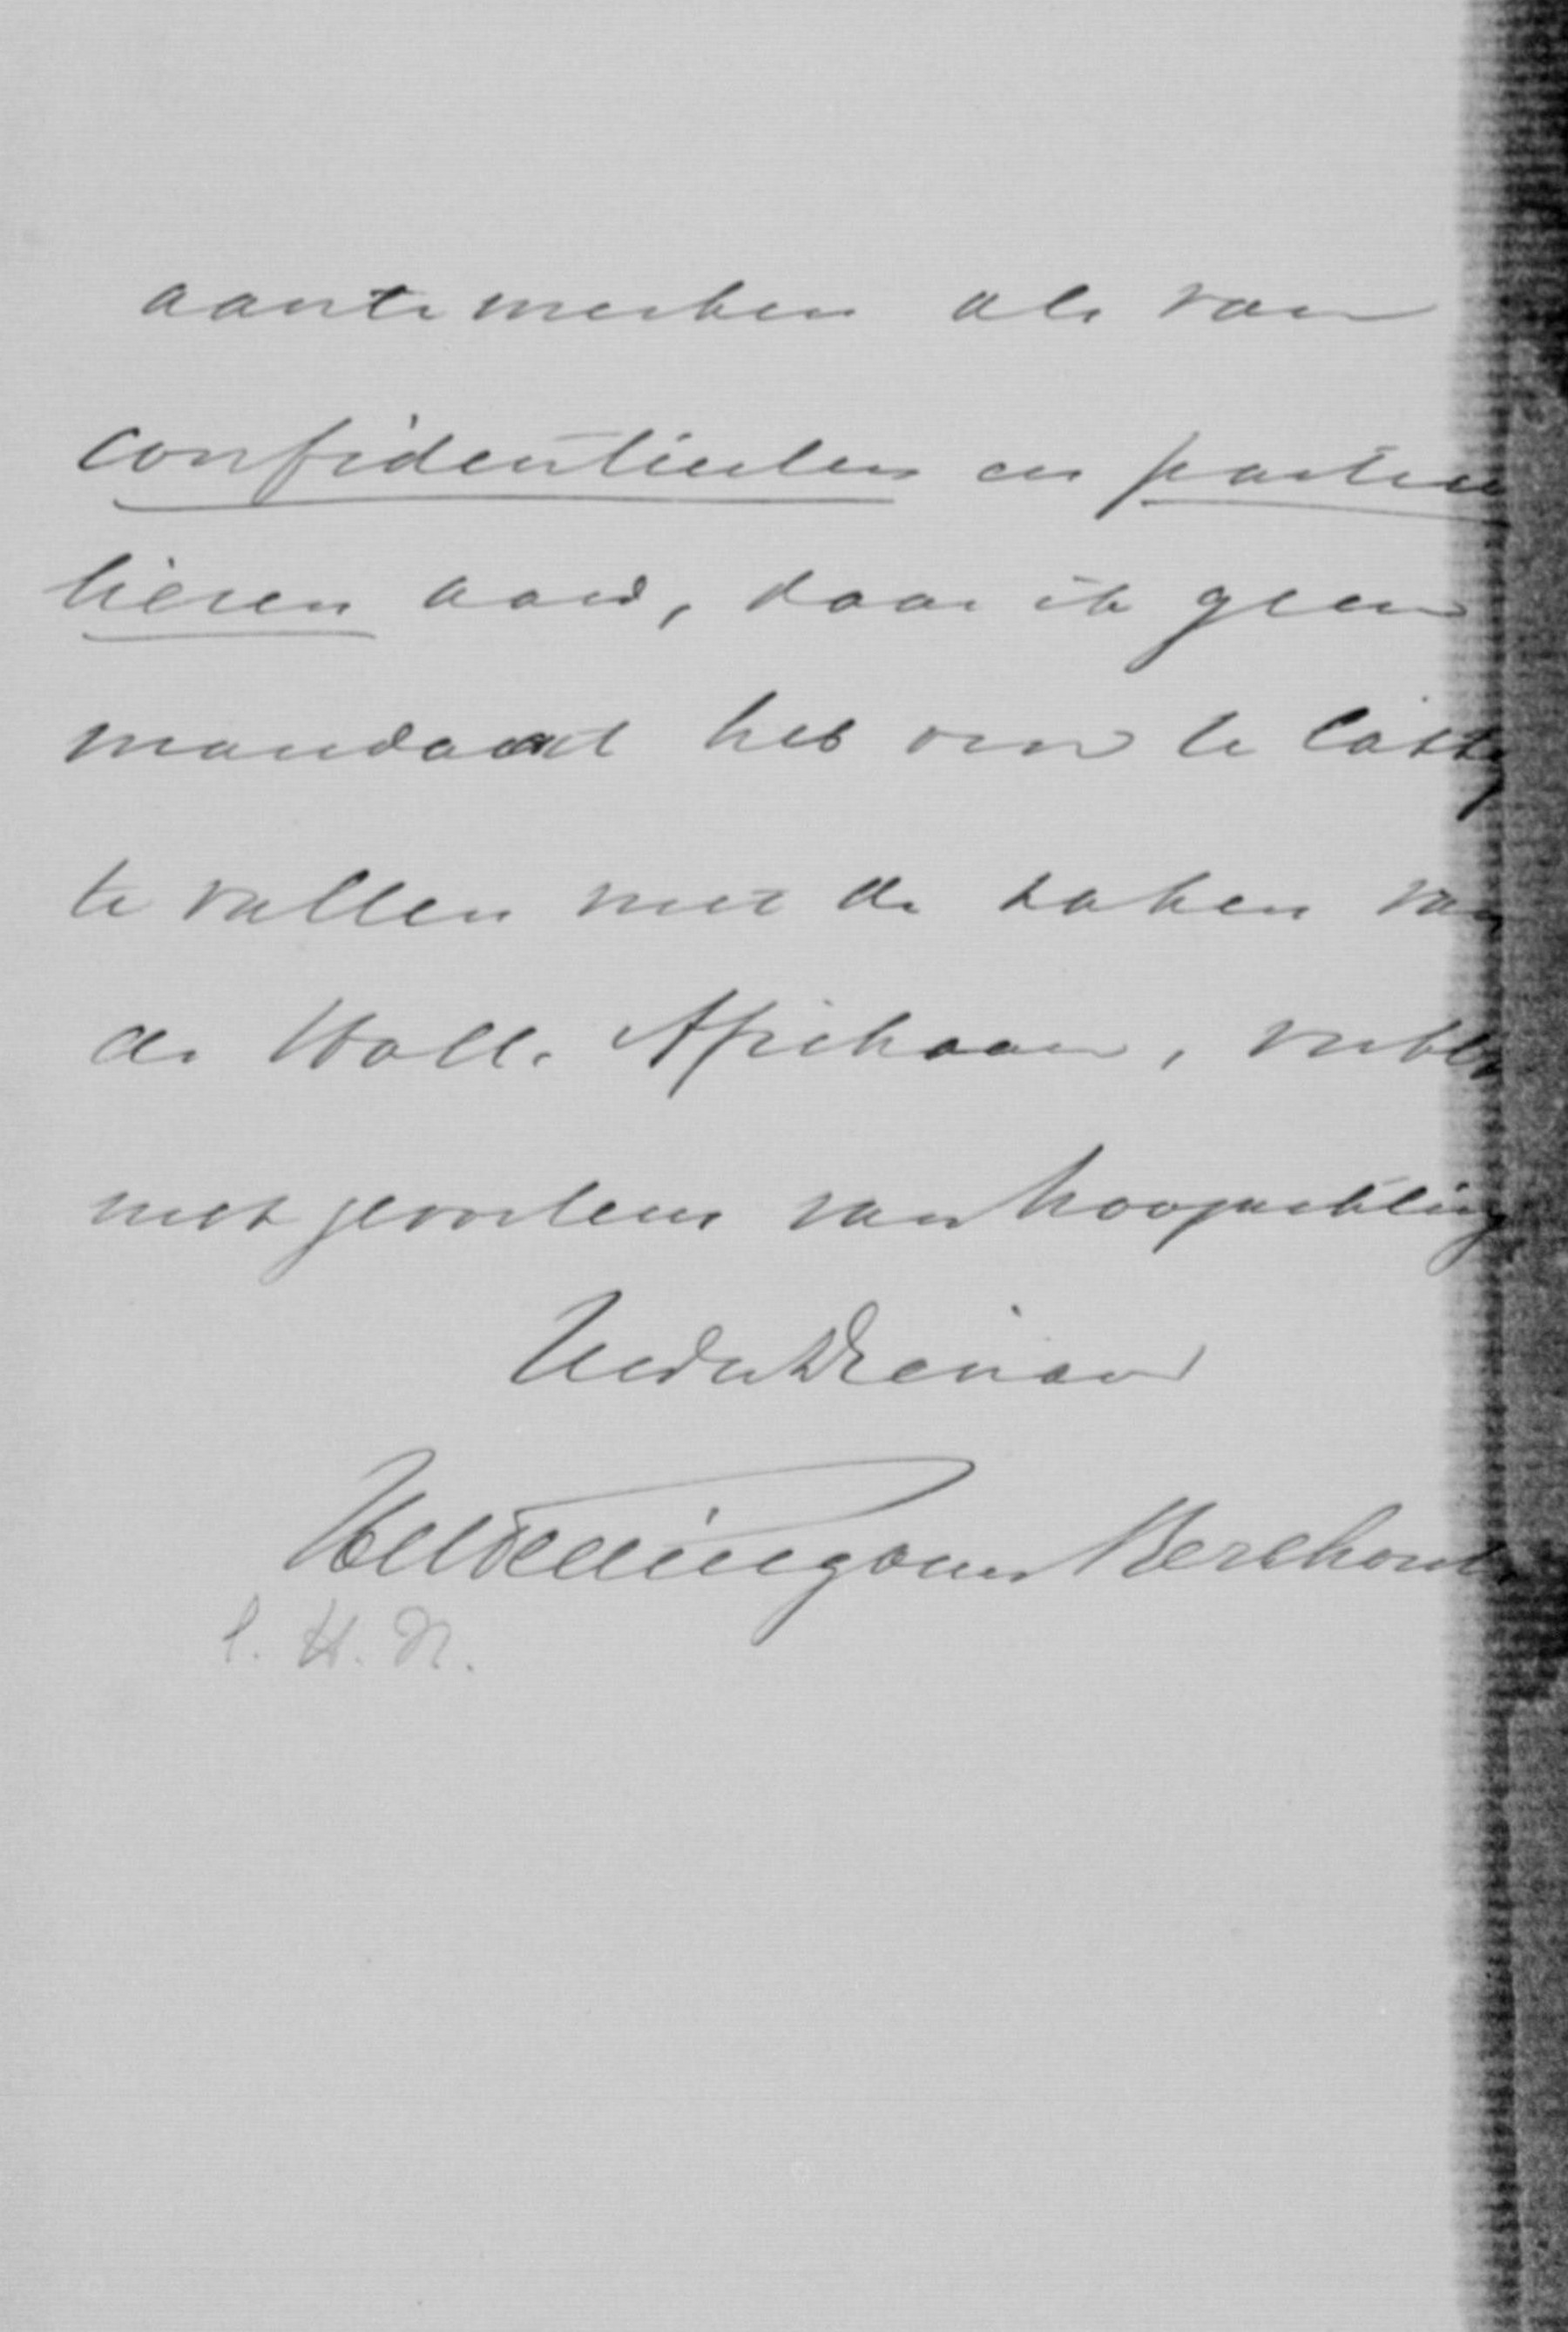 aante merken als van
confidentieelen en particu
lieren aard, daar ik geen
mandaat heb om U lastig
te vallen met de zaken van
de Holl. Afrikaan, verblijf
met gevoelens van hoogachting
UwDwDienaar
Teding van Berkhout
l. H. N.